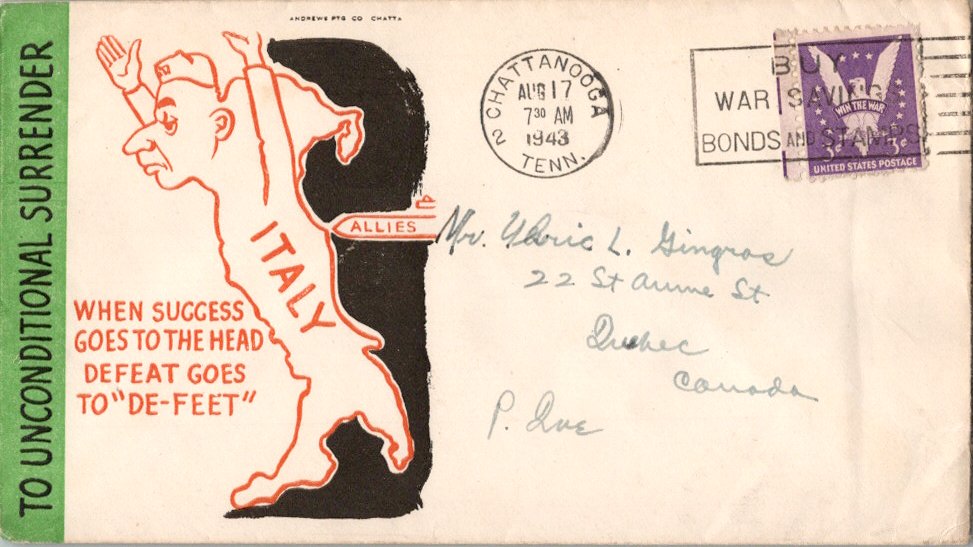 TO UNCONDITIONAL SURRENDER
ANDREWS PTG CO CHATTA
ITALY
ALLIES
WHEN SUCCESS
GOES TO THE HEAD
DEFEAT GOES
TO "DE-FEET"
CHATTANOOGA
AUG 17
7 30 AM
1943
2 TENN.
BUY
WAR SAVINGS
BONDS AND STAMPS
WIN THE WAR
3¢ 3¢
UNITED STATES POSTAGE
Mr. Ulric L. Gingras
22 St Anne St
Quebec
Canada
P. Que